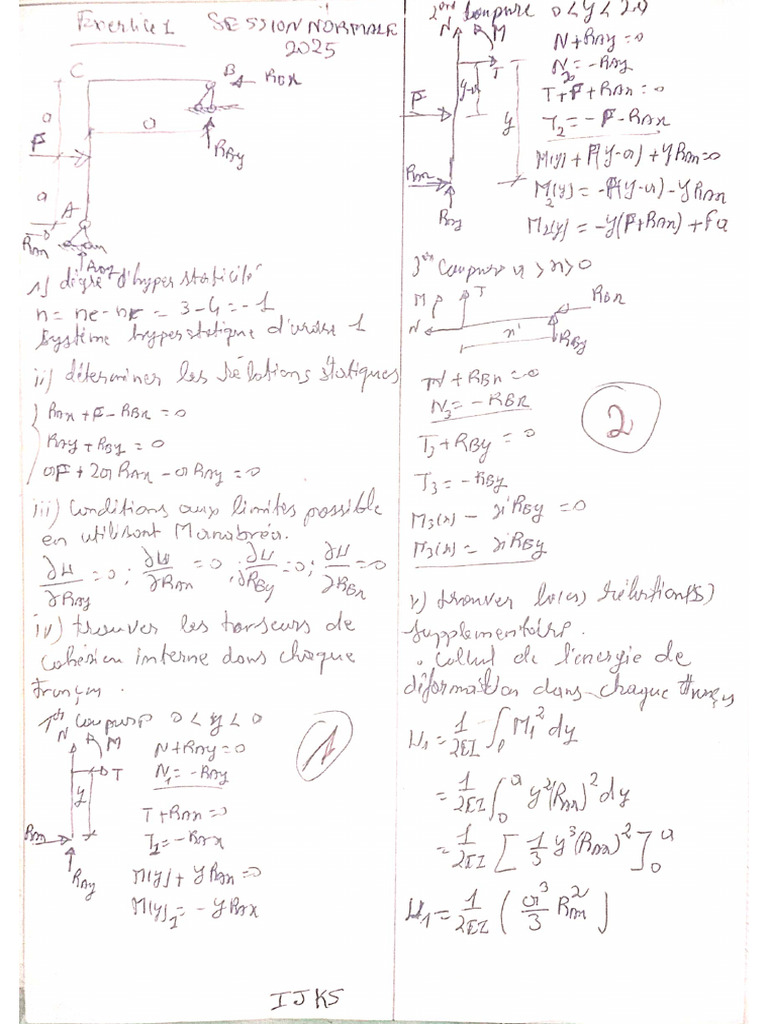 Exercice 1 SESSION NORMALE
2025
C
B
RBx
a
a
F
RBy
a
A
RAx
RAy
1) dégré d'hyperstaticité
n = ne - nr = 3-4 = -1
Système hyperstatique d'ordre 1
ii) déterminer les rélations statiques
RAx + F - RBx = 0
RAy + RBy = 0
aF + 2a RAx - a RAy = 0
iii) Conditions aux limites possible
en utilisant Manabréa.
∂U/∂RAy = 0 ; ∂U/∂RAx = 0 ; ∂U/∂RBy = 0 ; ∂U/∂RBx = 0
iv) trouver les torseurs de
cohésion interne dans chaque
tronçon.
1ère coupure 0 < y < a
N
M
T
y
RAx
RAy
N + RAy = 0
N1 = -RAy
T + RAx = 0
T1 = -RAx
M(y) + y RAx = 0
M(y)1 = - y RAx
1
2ème coupure a < y < 2a
N
M
T
F
y-a
y
RAx
RAy
N + RAy = 0
N2 = -RAy
T + F + RAx = 0
T2 = -F - RAx
M(y) + F(y-a) + y RAx = 0
M2(y) = -F(y-a) - y RAx
M2(y) = -y(F + RAx) + Fa
3ème Coupure a > x > 0
M
T
N
x
RBx
RBy
N + RBx = 0
N3 = -RBx
T3 + RBy = 0
T3 = -RBy
M3(x) - x RBy = 0
M3(x) = x RBy
2
v) trouver la(es) rélation(s)
supplementaire.
. Calcul de l'énergie de
déformation dans chaque tronçon
U1 = 1/2EI ∫₀ M1² dy
= 1/2EI ∫₀ᵃ y²(RAx)² dy
= 1/2EI [ 1/3 y³ (RAx)² ]₀ᵃ
U1 = 1/2EI ( a³/3 RAx² )
IJKS